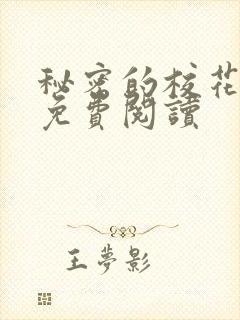 秘密的校花
免費閱讀
王夢影